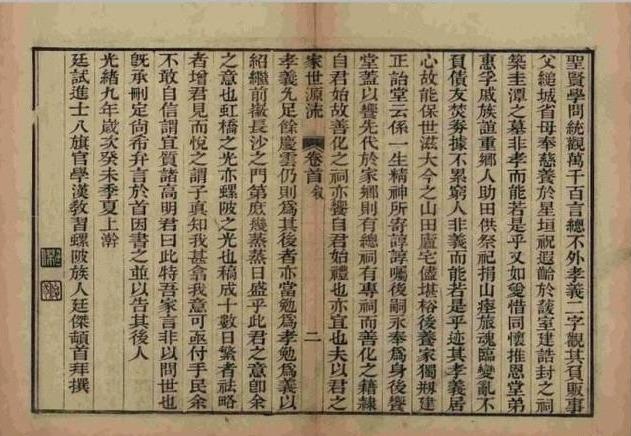 聖賢學問統觀萬千百言總不外孝義二字觀其負販事
父縋城省母奉慈養於星垣祝遐齡於護室建誥封之祠
築圭潭之墓非孝而能若是乎又如愛惜同懷推恩堂弟
惠孚戚族誼重鄉人助田供祭祀捐山瘞旅魂臨變亂不
負債友焚券據不累窮人非義而能若是乎迹其孝義居
心故能保世滋大今之山田廬宅儘堪裕後養家獨剏建
正詒堂云係一生精神所寄諄諄囑後嗣永奉爲身後饗
堂蓋以饗先代於家鄉則有總祠有專祠而善化之籍隸
自君始故善化之祠亦饗自君始禮也亦宜也夫以君之
家世源流 卷首 敘 二
孝義允足餘慶雲仍則爲其後者亦當勉爲孝勉爲義以
紹繼前徽長沙之門第庶幾蒸蒸日盛乎此君之意卽余
之意也虹橋之光亦螺陂之光也稿成十數日繁者祛略
者增君見而悅之謂子真知我甚愈我意可亟付手民余
不敢自信謂宜質諸高明君曰此特吾家言非以問世也
旣承刪定尙希弁言於首因書之並以告其後人
光緒九年歲次癸未季夏上澣
廷試進士八旗官學漢敎習螺陂族人廷傑頓首拜撰